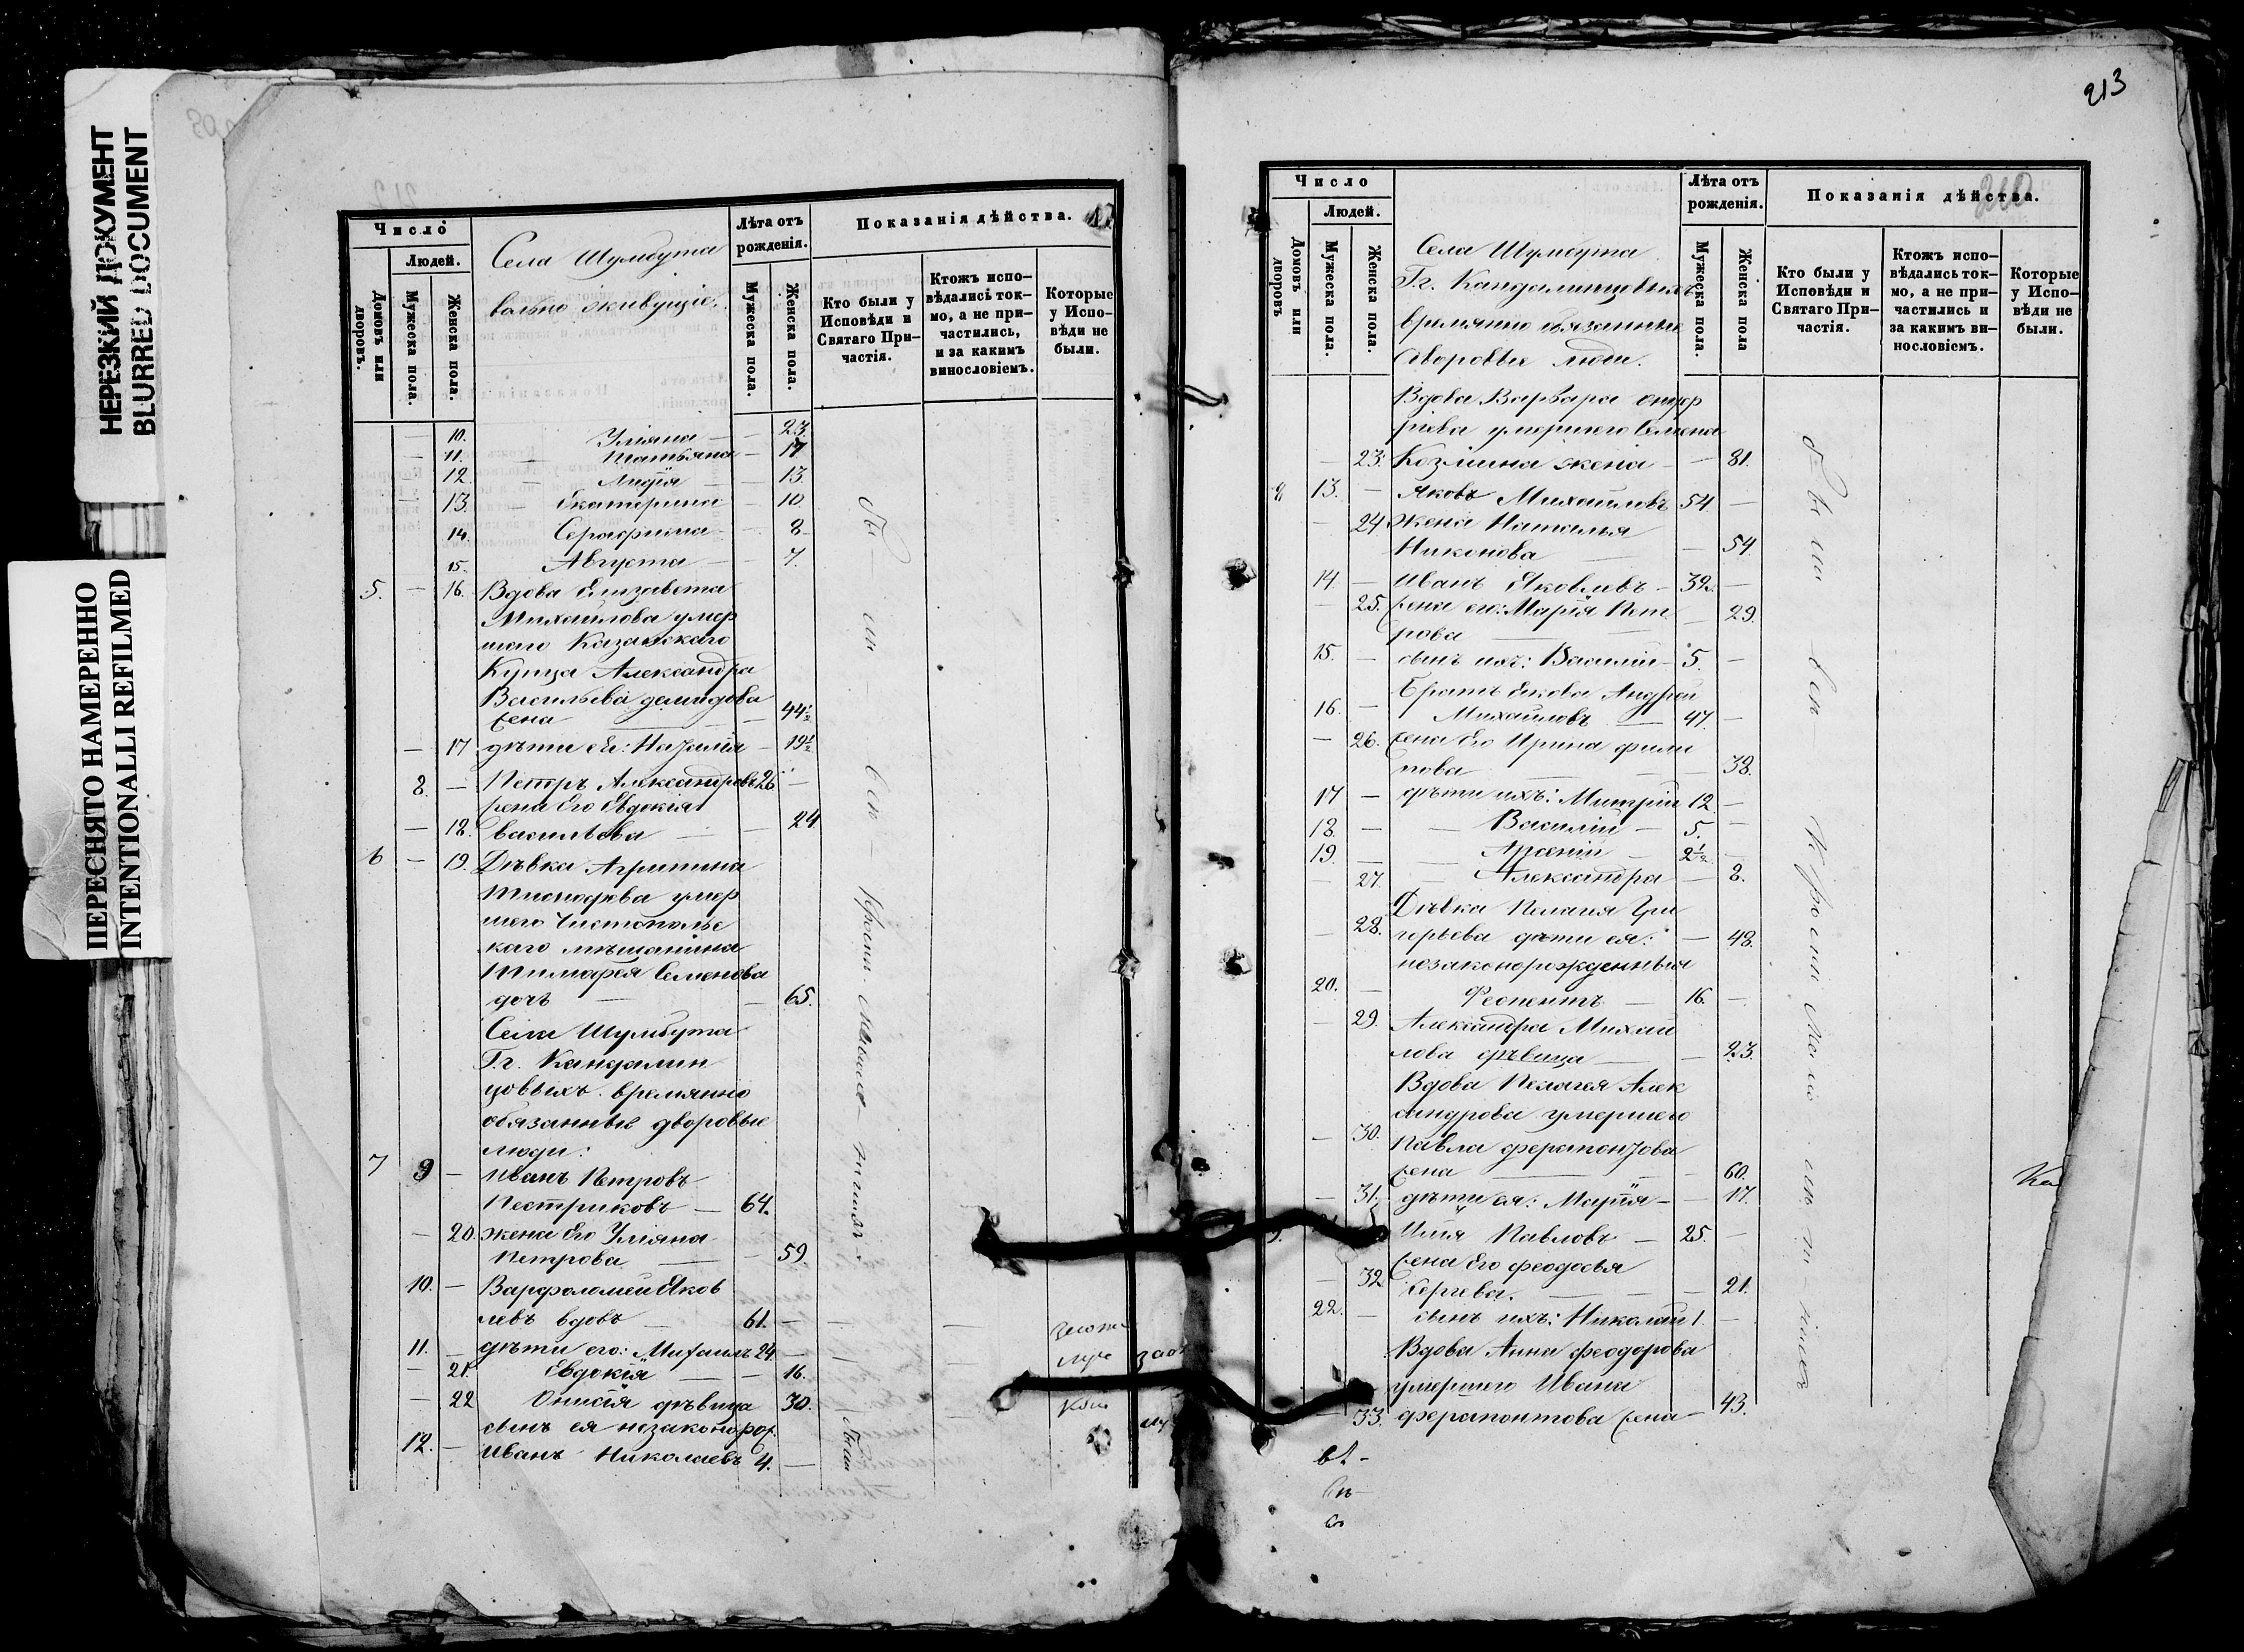 НЕРЕЗКИЙ ДОКУМЕНТ
BLURRED DOCUMENT
ПЕРЕСНЯТО НАМЕРЕННО
INTENTIONALLI REFILMED
Число
Людей.
Домовъ или дворовъ.
Мужеска пола.
Женска пола.
Села Шумбута
вольно живущіе.
Лѣта отъ рожденія.
Мужеска пола.
Женска пола.
Показанія дѣйства.
Кто были у Исповѣди и Святаго Причастія.
Ктожъ исповѣдались токмо, а не причастились, и за какимъ винословіемъ.
Которые у Исповѣди не были.
— 10. Уліяна — — 23.
— 11. — Татьяна — 17.
12. — Лидія — — 13.
13. — Екатерина — 10.
14. Серафима — 8.
15. Августа — — 7.
5. — 16. Вдова Елизавета
Михайлова умер
шаго Казанскаго
Купца Александра
Васильева Демидова
жена — — 44½
— 17 дѣти ея: Наталія — 19½
8. — Петръ Александровъ 26 —
жена Его Евдокія
— 18. Васильева — — 24
6 — 19. Дѣвка Агрипина
Тимофѣева умер
шего Чистопольс
каго мѣщанина
Тимофея Семенова
дочь — — 65.
Села Шумбута
Г.г. Кандалин
цовыхъ временно
обязанные дворовые
люди:
7 9 — Иванъ Петровъ
Пестриковъ — 64.
— 20. жена Его Уліяна
Петрова — — 59.
10. — Варфоломей Яков
левъ вдовъ — 61. — — —
11. — дѣти его: Михаилъ 24. — — —
— 21. Евдокія — — 16.
— 22 Онисія дѣвица 30.
сынъ ея незаконорож.
12. — Иванъ Николаевъ 4. —
213
Число
Людей.
Домовъ или дворовъ
Мужеска пола.
Женска пола.
Села Шумбута
Гг. Кандалинцевыхъ
временно обязанные
дворовые люди.
Лѣта отъ рожденія.
Мужеска пола.
Женска пола
Показанія дѣйства.
Кто были у Исповѣди и Святаго Причастія.
Ктожъ исповѣдались токмо, а не причастились и за какимъ винословіемъ.
Которые у Исповѣди не были.
Вдова Варвара
умершего Семена
— 23. Козмина жена — — 81.
8 13. — Яковъ Михайловъ 54. —
— 24 жена Наталья
Никонова — 54.
14. — Иванъ Яковлевъ — 32. —
— 25. жена его: Марія Пет
рова — — 29.
15. — сынъ ихъ: Василій — 5. —
Братъ Якова Андрей
16. — Михайловъ — 47. —
— 26. жена Его Ирина Фили
пова — — 38.
17 — дѣти ихъ: Митрій 12 —
18. — — Василій — 5. —
19. — — Арсеній — 2½ —
— 27. — Александра — 8.
Дѣвка Пелагея Гри
— 28. горьева дѣти ея: — 48.
незаконорожденныя
20. — Феопентъ — 16. —
— 29. Александра Михай
лова дѣвица — — 23.
Вдова Пелагея Алек
сандрова умершего
— 30. Павла Ферапонтова
жена — — 60.
— 31. дѣти ея: Марія — — 17.
Илія Павловъ — 25. —
жена Его Феодосья
— 32 Сергѣева. — — 21.
22. — сынъ ихъ: Николай 1. —
Вдова Анна Феодорова
умершего Ивана
— 33. Ферапонтова жена — 43.